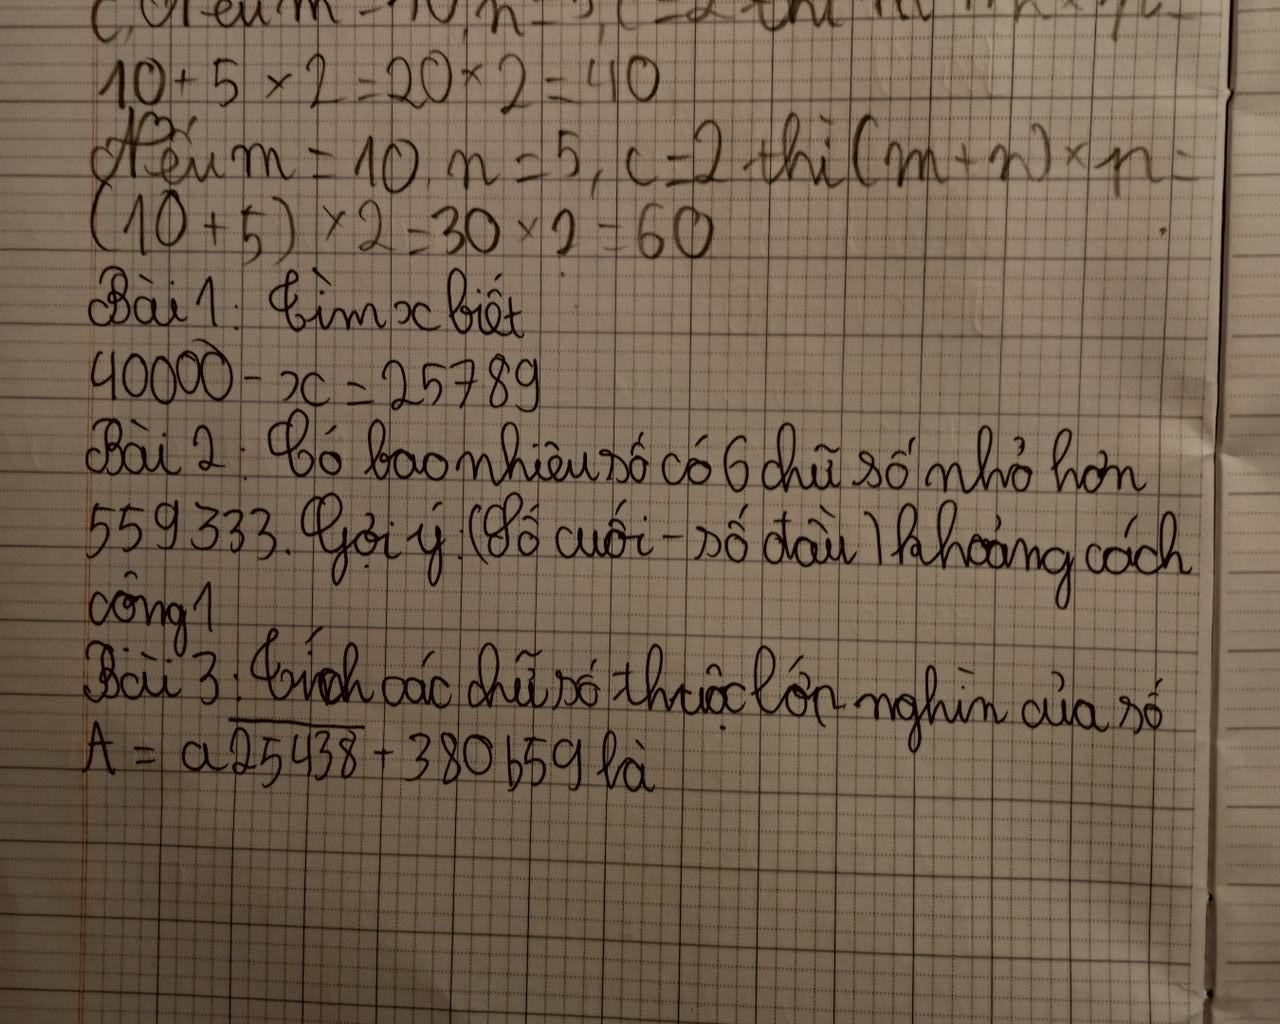 c, Nếu m = 10, n = 5, c = 2 thì m
10 + 5 × 2 = 20 × 2 = 40
Nếu m = 10, n = 5, c = 2 thì (m + n) × n =
(10 + 5) × 2 = 30 × 2 = 60
Bài 1: Tìm x biết
40000 - x = 25789
Bài 2: Có bao nhiêu số có 6 chữ số nhỏ hơn
559333. Gợi ý: (Số cuối - số đầu) khoảng cách
cộng 1
Bài 3: Tích các chữ số thuộc lớp nghìn của số
A = a25438 + 380b59 là